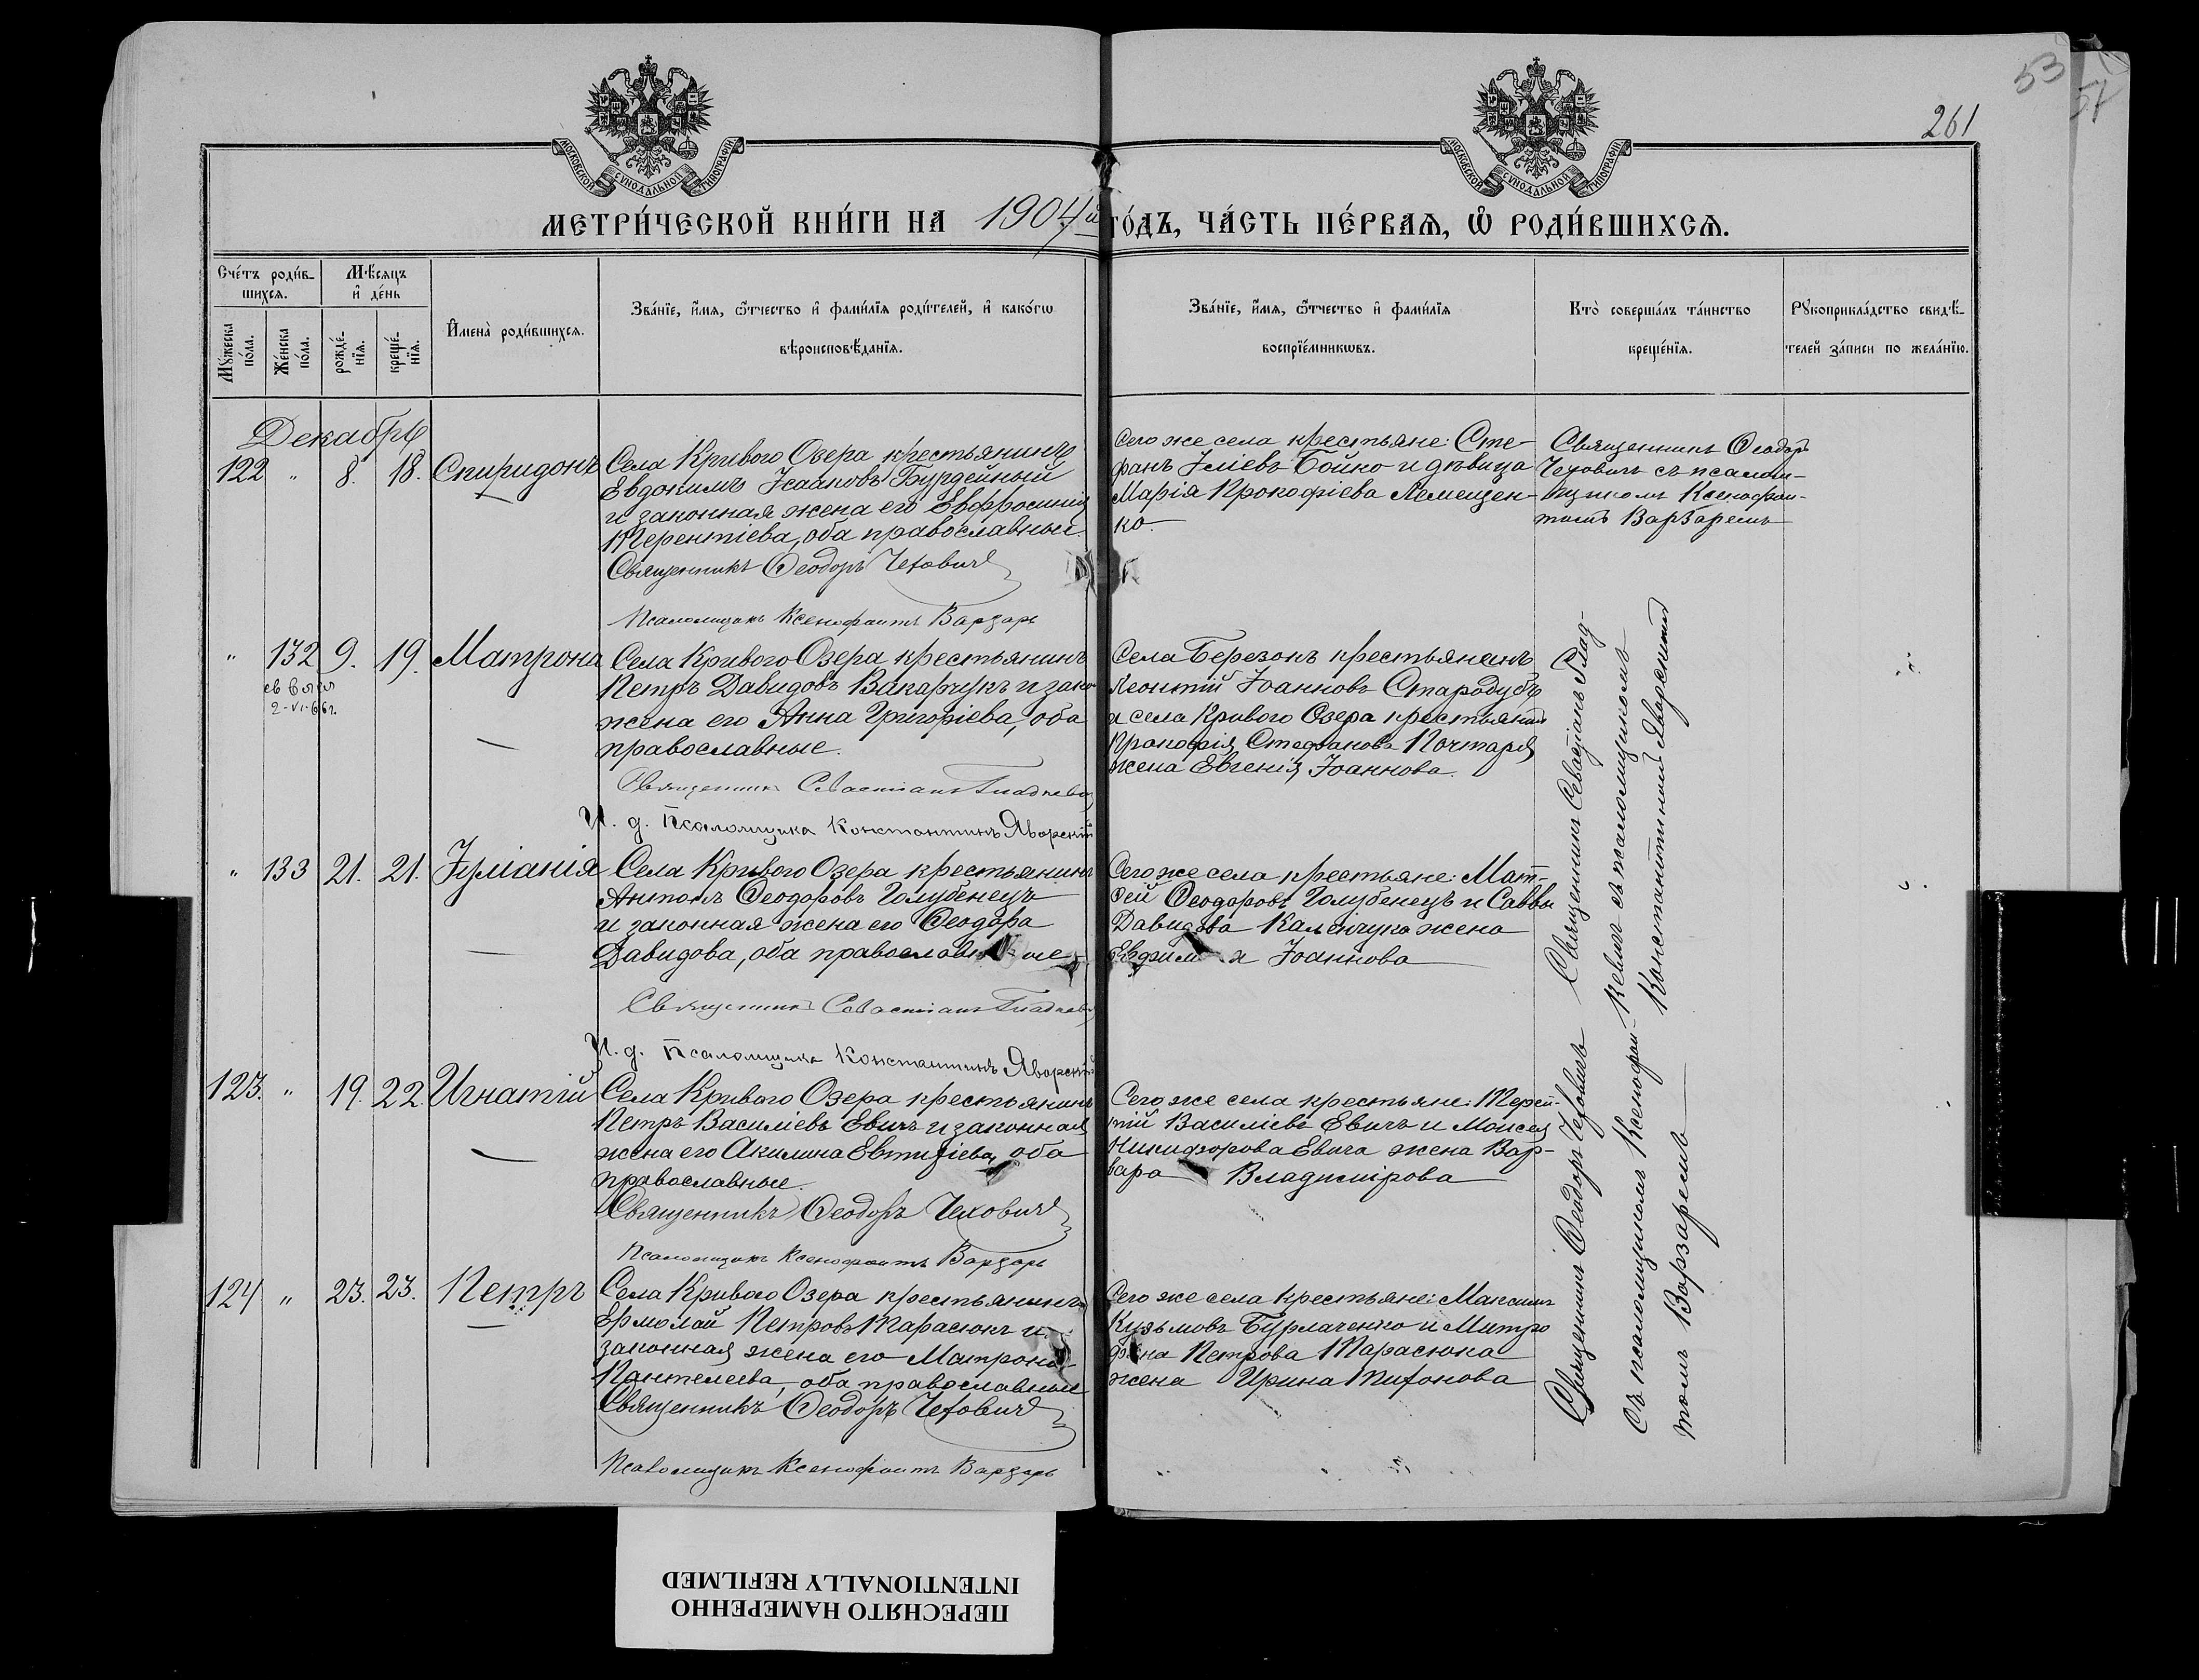 53
51
261
МОСКОВСКОЙ СѴНОДАЛЬНОЙ ТИПОГРАФІИ
МОСКОВСКОЙ СѴНОДАЛЬНОЙ ТИПОГРАФІИ
МЕТРИ́ЧЕСКОЙ КНИ́ГИ НА 1904й ГО́ДЪ, ЧА́СТЬ ПЕ́РВАѦ, Ѡ҆ РОДИ́ВШИХСѦ.
Сче́тъ роди́в-
шихсѧ.
Мꙋ́жеска по́ла.
Же́нска по́ла.
Мѣ́сѧцъ
и҆ де́нь
рожде́-
нїѧ.
креще́-
нїѧ.
И҆мена̀ роди́вшихсѧ.
Зва́нїе, и҆́мѧ, ѻ҆́тчество и҆ фами́лїѧ роди́телей, и҆ како́гѡ
вѣроисповѣ́данїѧ.
Зва́нїе, и҆́мѧ, ѻ҆́тчество и҆ фами́лїѧ
воспрїе́мникѡвъ.
Кто̀ соверша́лъ та́инство
креще́нїѧ.
Рꙋкоприкла́дство свидѣ́-
телей за́писи по жела́нїю.
Декабрь
122 " 8. 18. Спиридонъ
Села Кривого Озера крестьянинъ
Евдокимъ Исааковъ Бурдейный
и законная жена его Евфросинія
Терентіева, оба православные.
Священникъ Ѳеодоръ Чехович
Псаломщикъ Ксенофонтъ Варзарь
Сего же села крестьяне: Сте-
фанъ Іліевъ Бойко и дѣвица
Марія Прокофіева Лемещен-
ко.
Священникъ Ѳеодоръ
Чеховичъ съ псалом-
щикомъ Ксенофон-
томъ Варзаремъ
" 132 9. 19. Матрона
2-VI-66г.
Села Кривого Озера крестьянинъ
Петръ Давидовъ Вакарчукъ и зако
жена его Анна Григоріева, оба
православные.
Священникъ Севастіанъ Гладкевич
И. д. Псаломщика Константинъ Яворскій
Села Березокъ крестьянинъ
Леонтій Іоанновъ Стародубъ
и села Кривого Озера крестьянина
Прокофія Стефанова Почтаря
жена Евгенія Іоаннова.
" 133 21. 21. Іуліанія
Села Кривого Озера крестьянинъ
Антонъ Ѳеодоровъ Голубенецъ
и законная жена его Ѳеодора
Давидова, оба православные
Священникъ Севастіанъ Гладкевич
И. д. Псаломщика Константинъ Яворскій
Сего же села крестьяне: Мат-
ѳей Ѳеодоровъ Голубенецъ и Саввы
Давидова Каленчука жена
Евфимія Іоаннова
Священникъ Севастіанъ Глад-
кевичъ съ псаломщикомъ
Константиномъ Яворскимъ
123. " 19. 22. Игнатій
Села Кривого Озера крестьянинъ
Петръ Василіевъ Евичъ и законная
жена его Акилина Евтихіева, оба
православные.
Священникъ Ѳеодоръ Чехович
Псаломщикъ Ксенофонтъ Варзарь
Сего же села крестьяне: Терен-
тій Василіевъ Евичъ и Моисея
Никифорова Евича жена Вар-
вара Владимірова
124 " 23. 23. Петръ
Села Кривого Озера крестьянинъ
Ермолай Петровъ Тарасюкъ и
законная жена его Матрона
Пантелеева, оба православные
Священникъ Ѳеодоръ Чехович
Псаломщикъ Ксенофонтъ Варзарь
Сего же села крестьяне: Максимъ
Кузьмовъ Бурлаченко и Митро
фана Петрова Тарасюка
жена Ирина Тихонова
Священникъ Ѳеодоръ Чеховичъ
съ псаломщикомъ Ксенофон-
томъ Варзаремъ
ПЕРЕСНЯТО НАМЕРЕННО
INTENTIONALLY REFILMED